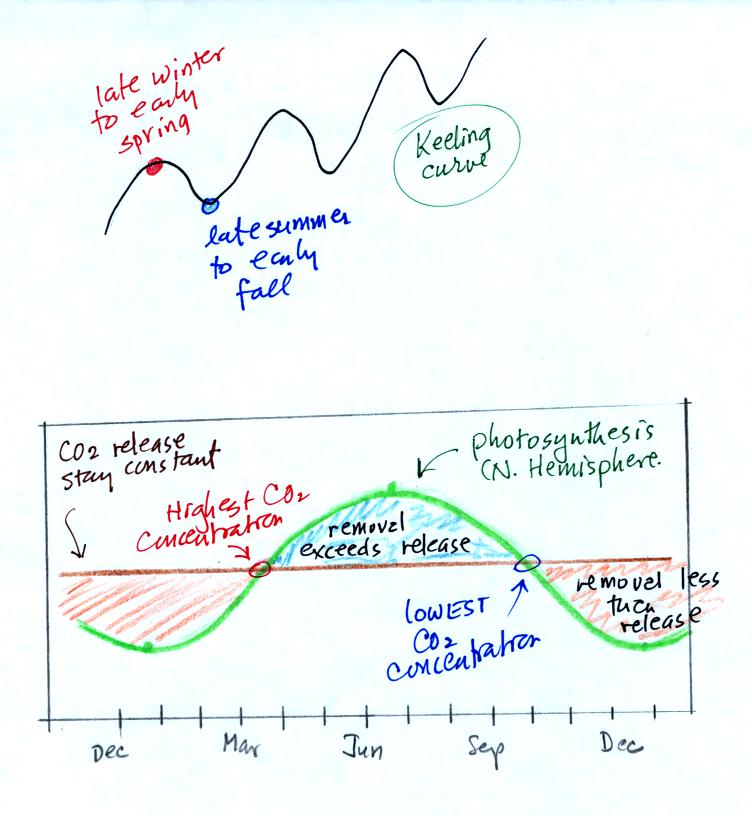 late winter
to early
spring
Keeling
curve
late summer
to early
fall
CO2 release
stay constant
photosynthesis
(N. Hemisphere.
Highest CO2
concentration
removal
exceeds release
removal less
then
release
LOWEST
CO2
concentration
Dec
Mar
Jun
Sep
Dec